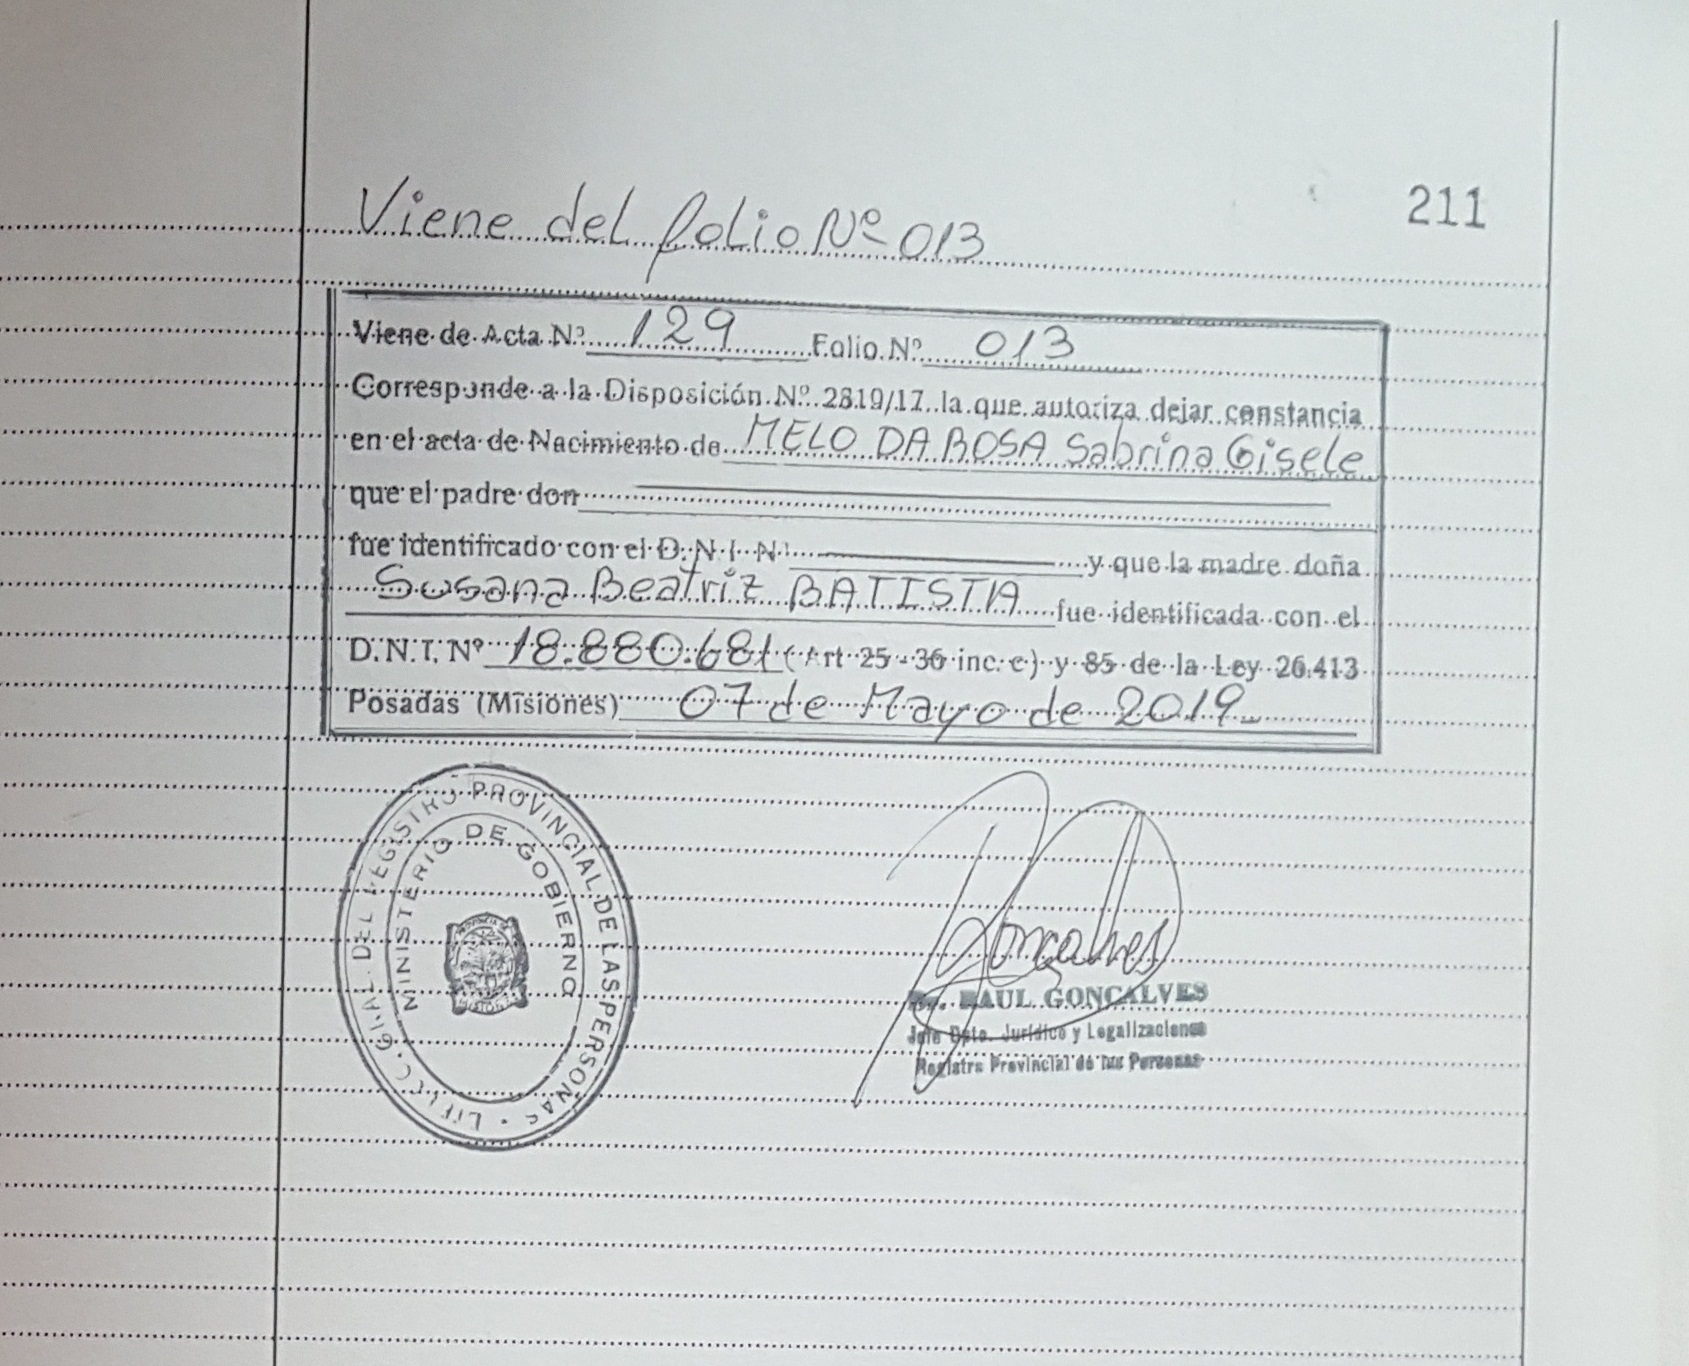 211
Viene del folio Nº 013
Viene de Acta Nº 129 Folio Nº 013
Corresponde a la Disposición Nº 2819/17 la que autoriza dejar constancia
en el acta de Nacimiento de MELO DA ROSA Sabrina Gisele
que el padre don
fue identificado con el D.N.I. Nº y que la madre doña
Susana Beatriz BATISTTA fue identificada con el
D.N.I. Nº 18.880.681 (Art 25 - 36 inc. c) y 85 de la Ley 26.413
Posadas (Misiones) 07 de Mayo de 2019
DEL REGISTRO PROVINCIAL DE LAS PERSONAS
MINISTERIO DE GOBIERNO
Goncalves
RAUL GONCALVES
Jefe Dpto. Jurídico y Legalizaciones
Registro Provincial de las Personas